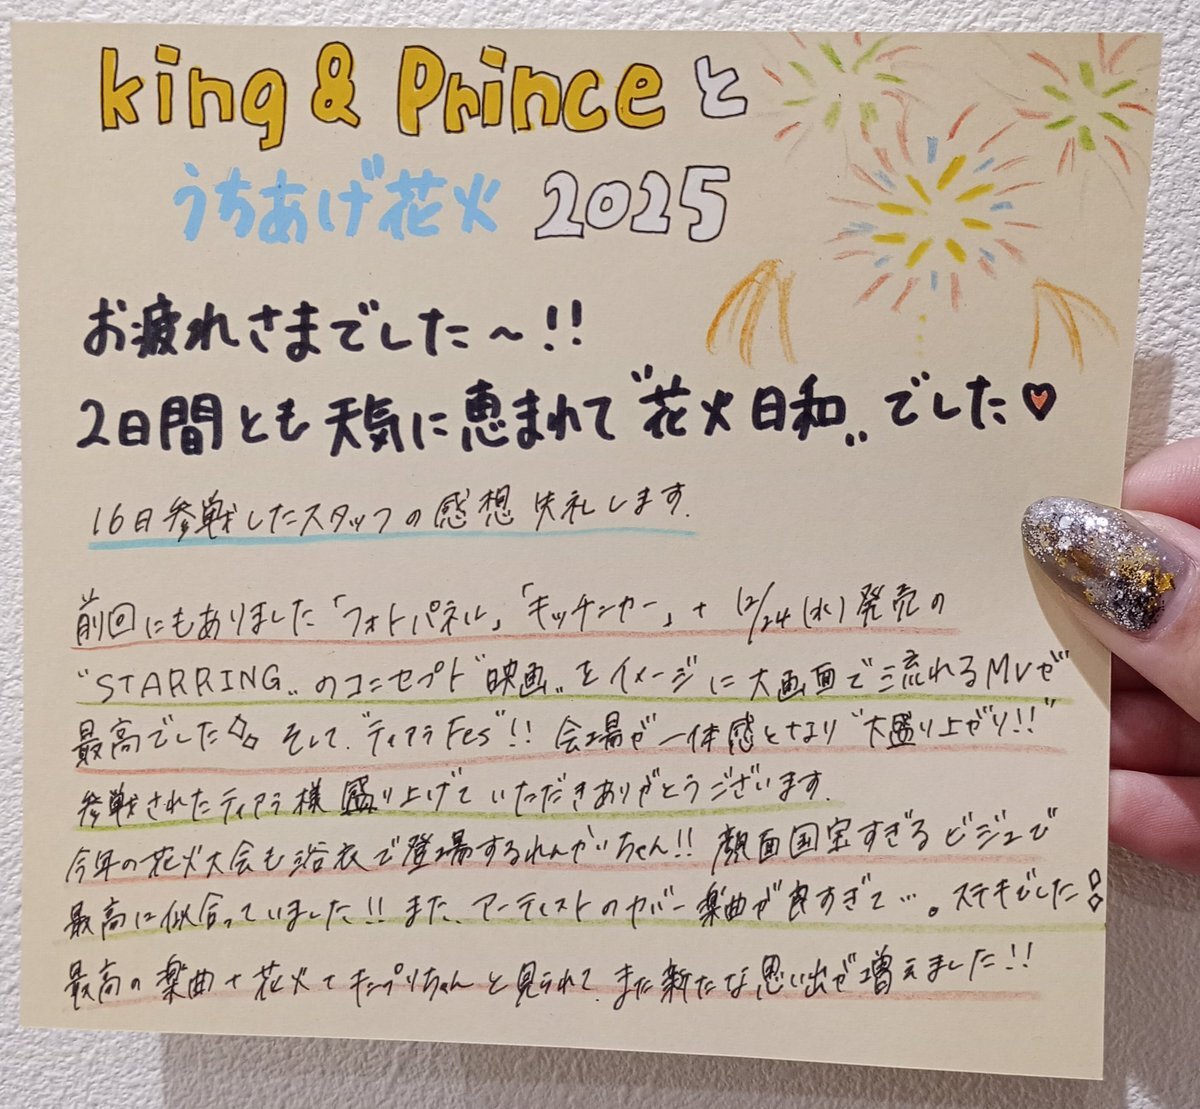 King & Prince と
うちあげ花火 2025
お疲れさまでした～!!
2日間とも天気に恵まれて“花火日和„でした♡
16日参戦したスタッフの感想失礼します.
前回にもありました「フォトパネル」「キッチンカー」+ 12/24(水)発売の
“STARRING„のコンセプト“映画„をイメージに大画面で流れるMVが
最高でした そして、“ティアラFes”!! 会場が一体感となり“大盛り上がり!!”
参戦されたティアラ様盛り上げていただきありがとうございます.
今年の花火大会も浴衣で登場するれんかいちゃん!! 顔面国宝すぎるビジュで
最高に似合っていました!! また、アーティストのカバー楽曲が良すぎて…。ステキでした
最高の楽曲+花火+キンプリちゃんと見られて、また新たな思い出が増えました!!